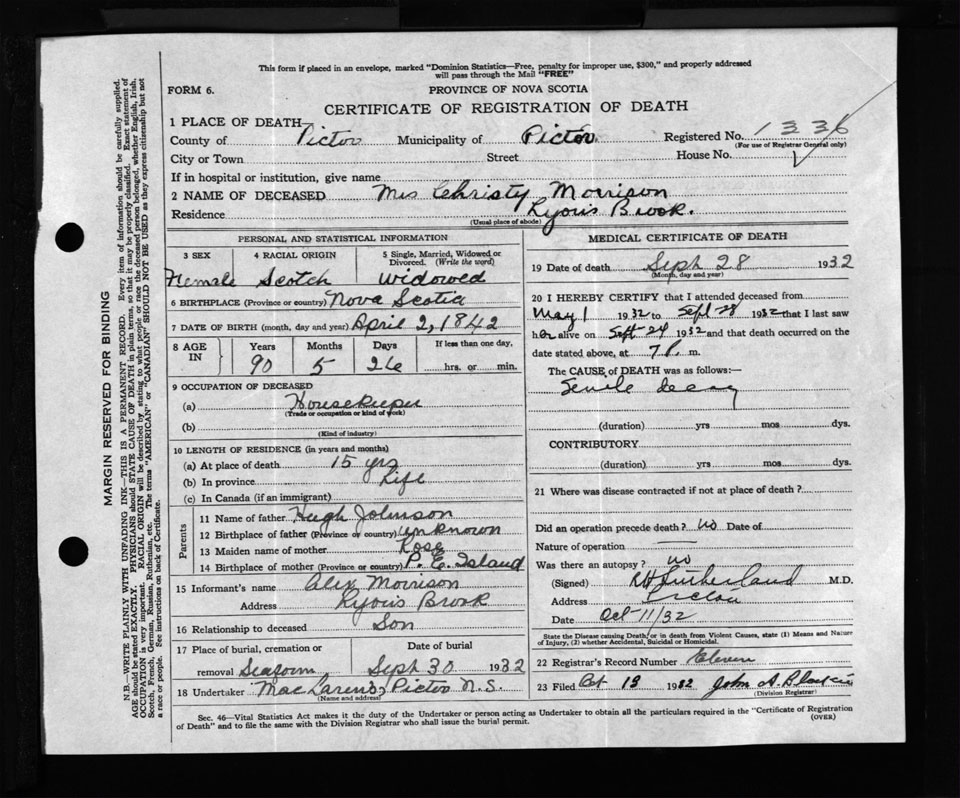 This form if placed in an envelope, marked "Dominion Statistics—Free, penalty for improper use, $300," and properly addressed
will pass through the Mail "FREE"
FORM 6.
PROVINCE OF NOVA SCOTIA
CERTIFICATE OF REGISTRATION OF DEATH
1 PLACE OF DEATH—
County of Pictou Municipality of Pictou Registered No. 1336
(For use of Registrar General only)
City or Town Street House No.
If in hospital or institution, give name
2 NAME OF DECEASED Mrs Christy Morrison
Residence Lyons Brook.
(Usual place of abode)
PERSONAL AND STATISTICAL INFORMATION
3 SEX 4 RACIAL ORIGIN 5 Single, Married, Widowed or Divorced. (Write the word)
Female Scotch Widowed
6 BIRTHPLACE (Province or country) Nova Scotia
7 DATE OF BIRTH (month, day and year) April 2, 1842
8 AGE IN Years Months Days If less than one day,
90 5 26 hrs. or min.
9 OCCUPATION OF DECEASED
(a) Housekeeper
(Trade or occupation or kind of work)
(b)
(Kind of industry)
10 LENGTH OF RESIDENCE (in years and months)
(a) At place of death 15 yrs
(b) In province Life
(c) In Canada (if an immigrant)
Parents
11 Name of father Hugh Johnson
12 Birthplace of father (Province or country) Unknown
13 Maiden name of mother Rose
14 Birthplace of mother (Province or country) P. E. Island
15 Informant's name Alex Morrison
Address Lyons Brook
16 Relationship to deceased Son
17 Place of burial, cremation or removal Date of burial
Sept 30 1932
18 Undertaker MacLarens, Pictou N.S.
(Name and address)
MEDICAL CERTIFICATE OF DEATH
19 Date of death Sept 28 1932
(Month, day and year)
20 I HEREBY CERTIFY that I attended deceased from
May 1 1932 to Sept 28 1932 that I last saw
her alive on Sept 24 1932 and that death occurred on
date stated above, at 7 P. m.
The CAUSE of DEATH was as follows:—
Senile decay
(duration) yrs mos dys.
CONTRIBUTORY
(duration) yrs mos dys.
21 Where was disease contracted if not at place of death?
Did an operation precede death? no Date of
Nature of operation —
Was there an autopsy? no
(Signed) Sutherland M.D.
Address Pictou
Date Oct 11/32
State the Disease causing Death, or in death from Violent Causes, state (1) Means and Nature
of Injury, (2) whether Accidental, Suicidal or Homicidal.
22 Registrar's Record Number Eleven
23 Filed Oct 13 1932 John A.
(Division Registrar)
Sec. 46—Vital Statistics Act makes it the duty of the Undertaker or person acting as Undertaker to obtain all the particulars required in the "Certificate of Registration
of Death" and to file the same with the Division Registrar who shall issue the burial permit.
(OVER)
MARGIN RESERVED FOR BINDING
N.B.—WRITE PLAINLY WITH UNFADING INK—THIS IS A PERMANENT RECORD. Every item of information should be carefully supplied.
AGE should be stated EXACTLY. PHYSICIANS should STATE CAUSE OF DEATH in plain terms, so that it may be properly classified. Exact statement of
OCCUPATION is very important. RACIAL ORIGIN will be described by stating to what people or race the deceased person belonged, whether English, Irish,
Scotch, French, German, Russian, Ruthenian, etc. The terms "AMERICAN" or "CANADIAN" SHOULD NOT BE USED as they express citizenship but not
a race or people. See instructions on back of Certificate.